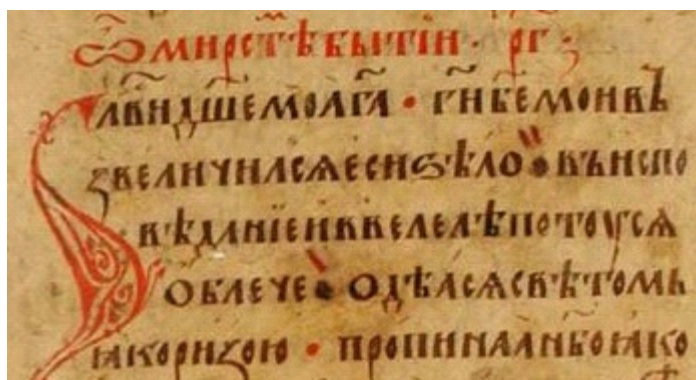 Ѡ мирстѣ бытїи · р҃г ·
Бл҃ви дш҃е моа г҃а · г҃и б҃е мои въ
звеличилсѧ еси ѕѣло · въ испо
вѣданїе и в велелѣпотꙋ сѧ
облече · одѣасѧ свѣтомь
ꙗко ризою · пропинаа нб҃о ꙗко